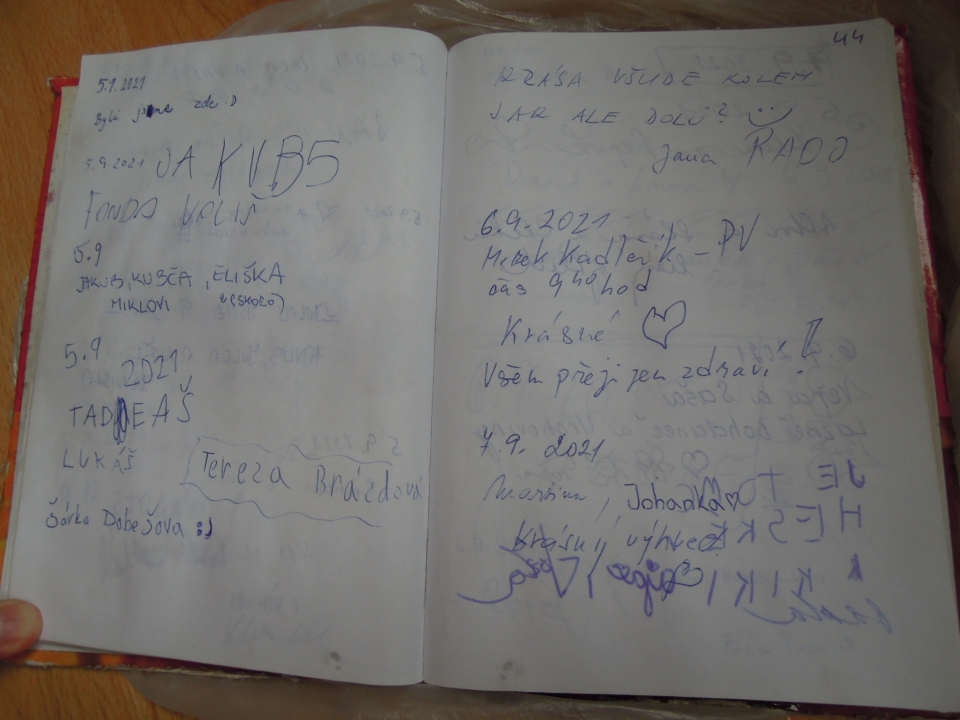 5.9.2021
Byli jsme zde :D
5.9.2021 JAKUB 5
5.9
JAKUB, KUBČA, ELIŠKA
MIKLOVI
5.9
2021
TADEÁŠ
LUKÁŠ
Tereza Brázdová
Šárka Dobešova :)
44
KRÁSA VŠUDE KOLEM
JAK ALE DOLŮ?
Jana RADO
6.9.2021
Mirek Kadlčík - PV
čas 9 hod
Krásné
Všem přeji jen zdraví!
7.9. 2021
Martina, Johanka
Krásný výhled
JE TO
HESKÉ
KIKI